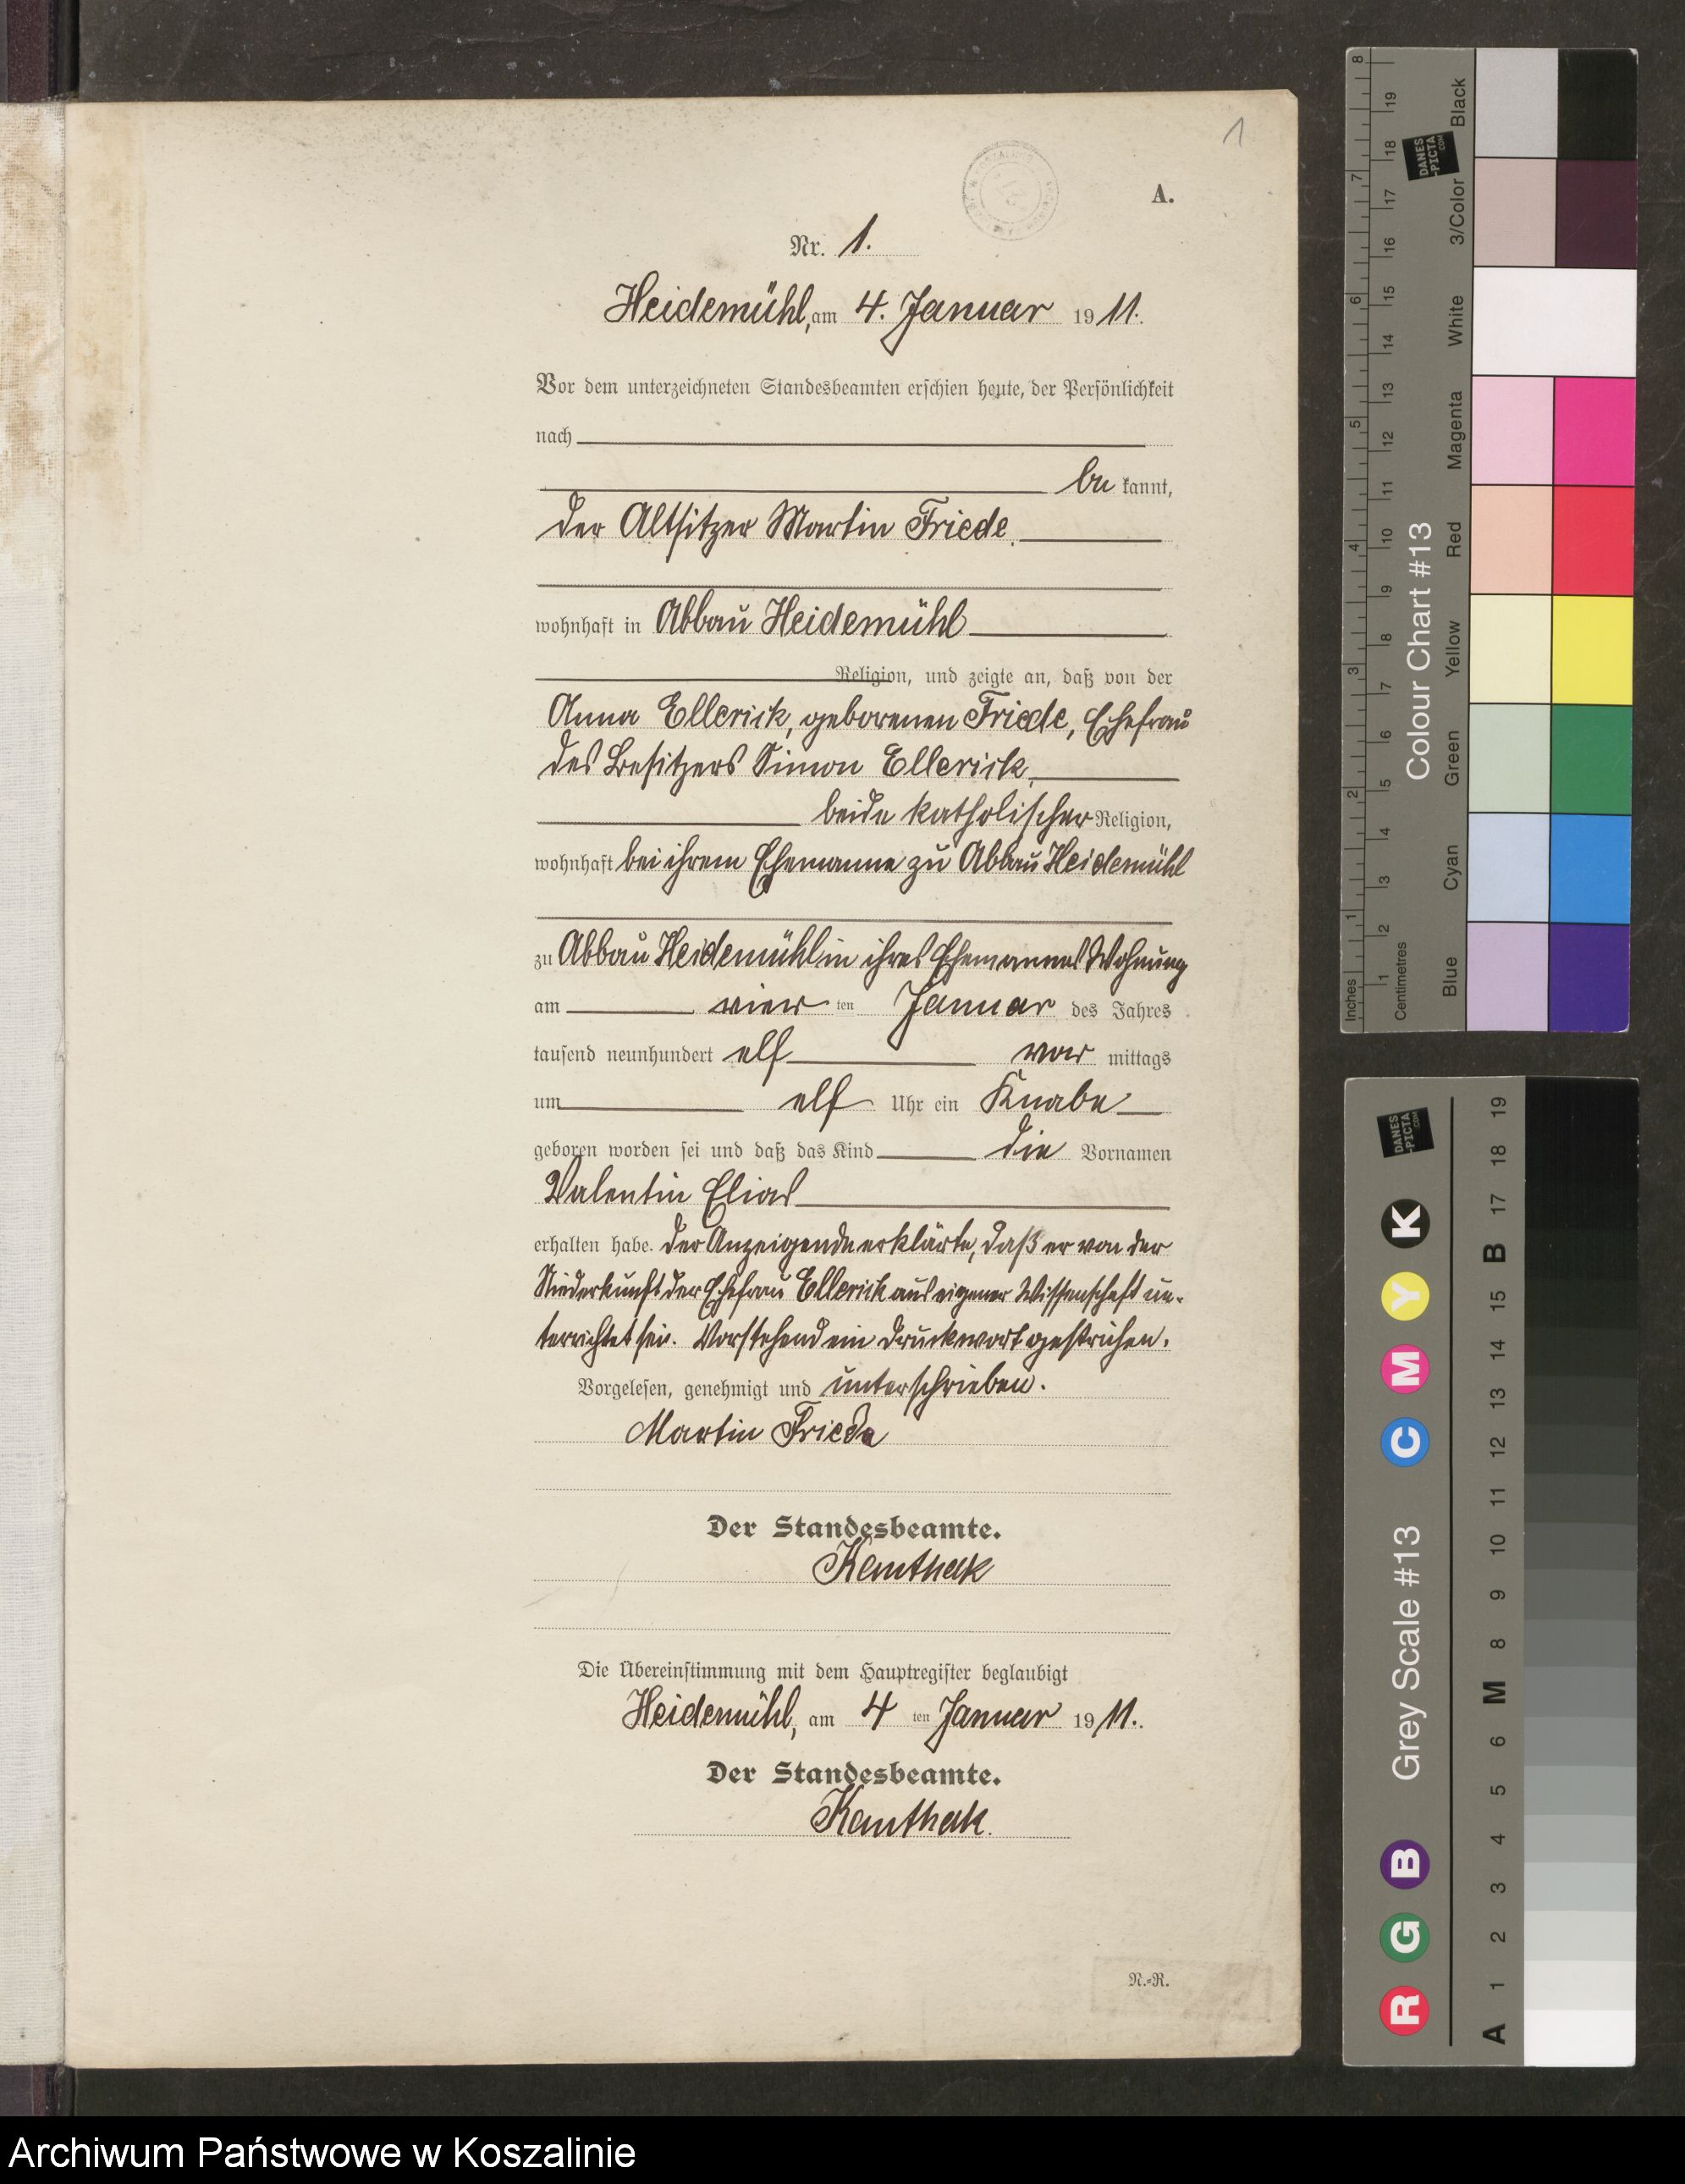 1
A.
Nr. 1.
Heidemühl, am 4. Januar 1911.
Vor dem unterzeichneten Standesbeamten erschien heute, der Persönlichkeit
nach
be kannt,
der Altsitzer Martin Friede,
wohnhaft in Abbau Heidemühl
Religion, und zeigte an, daß von der
Anna Ellerick, geborenen Friede, Ehefrau
des Besitzers Simon Ellerick,
beide katholischer Religion,
wohnhaft bei ihrem Ehemanne zu Abbau Heidemühl
zu Abbau Heidemühl in ihres Ehemannes Wohnung
am vier ten Januar des Jahres
tausend neunhundert elf vor mittags
um elf Uhr ein Knabe
geboren worden sei und daß das Kind die Vornamen
Valentin Elias
erhalten habe. Der Anzeigende erklärte, daß er von der
Niederkunft der Ehefrau Ellerick aus eigener Wissenschaft un-
terrichtet sei. Vorstehend ein Druckwort gestrichen.
Vorgelesen, genehmigt und unterschrieben.
Martin Friede
Der Standesbeamte.
Kanthak
Die Übereinstimmung mit dem Hauptregister beglaubigt
Heidemühl, am 4 ten Januar 1911.
Der Standesbeamte.
Kanthak.
N.-R.
Colour Chart #13
Black
3/Color
White
Magenta
Red
Yellow
Green
Cyan
Blue
Inches 1 2 3 4 5 6 7 8
Centimetres 1 2 3 4 5 6 7 8 9 10 11 12 13 14 15 16 17 18 19
DANES
-PICTA
.COM
Grey Scale #13
DANES
-PICTA
.COM
R G B C M Y K
A 1 2 3 4 5 6 M 8 9 10 11 12 13 14 15 B 17 18 19
Archiwum Państwowe w Koszalinie